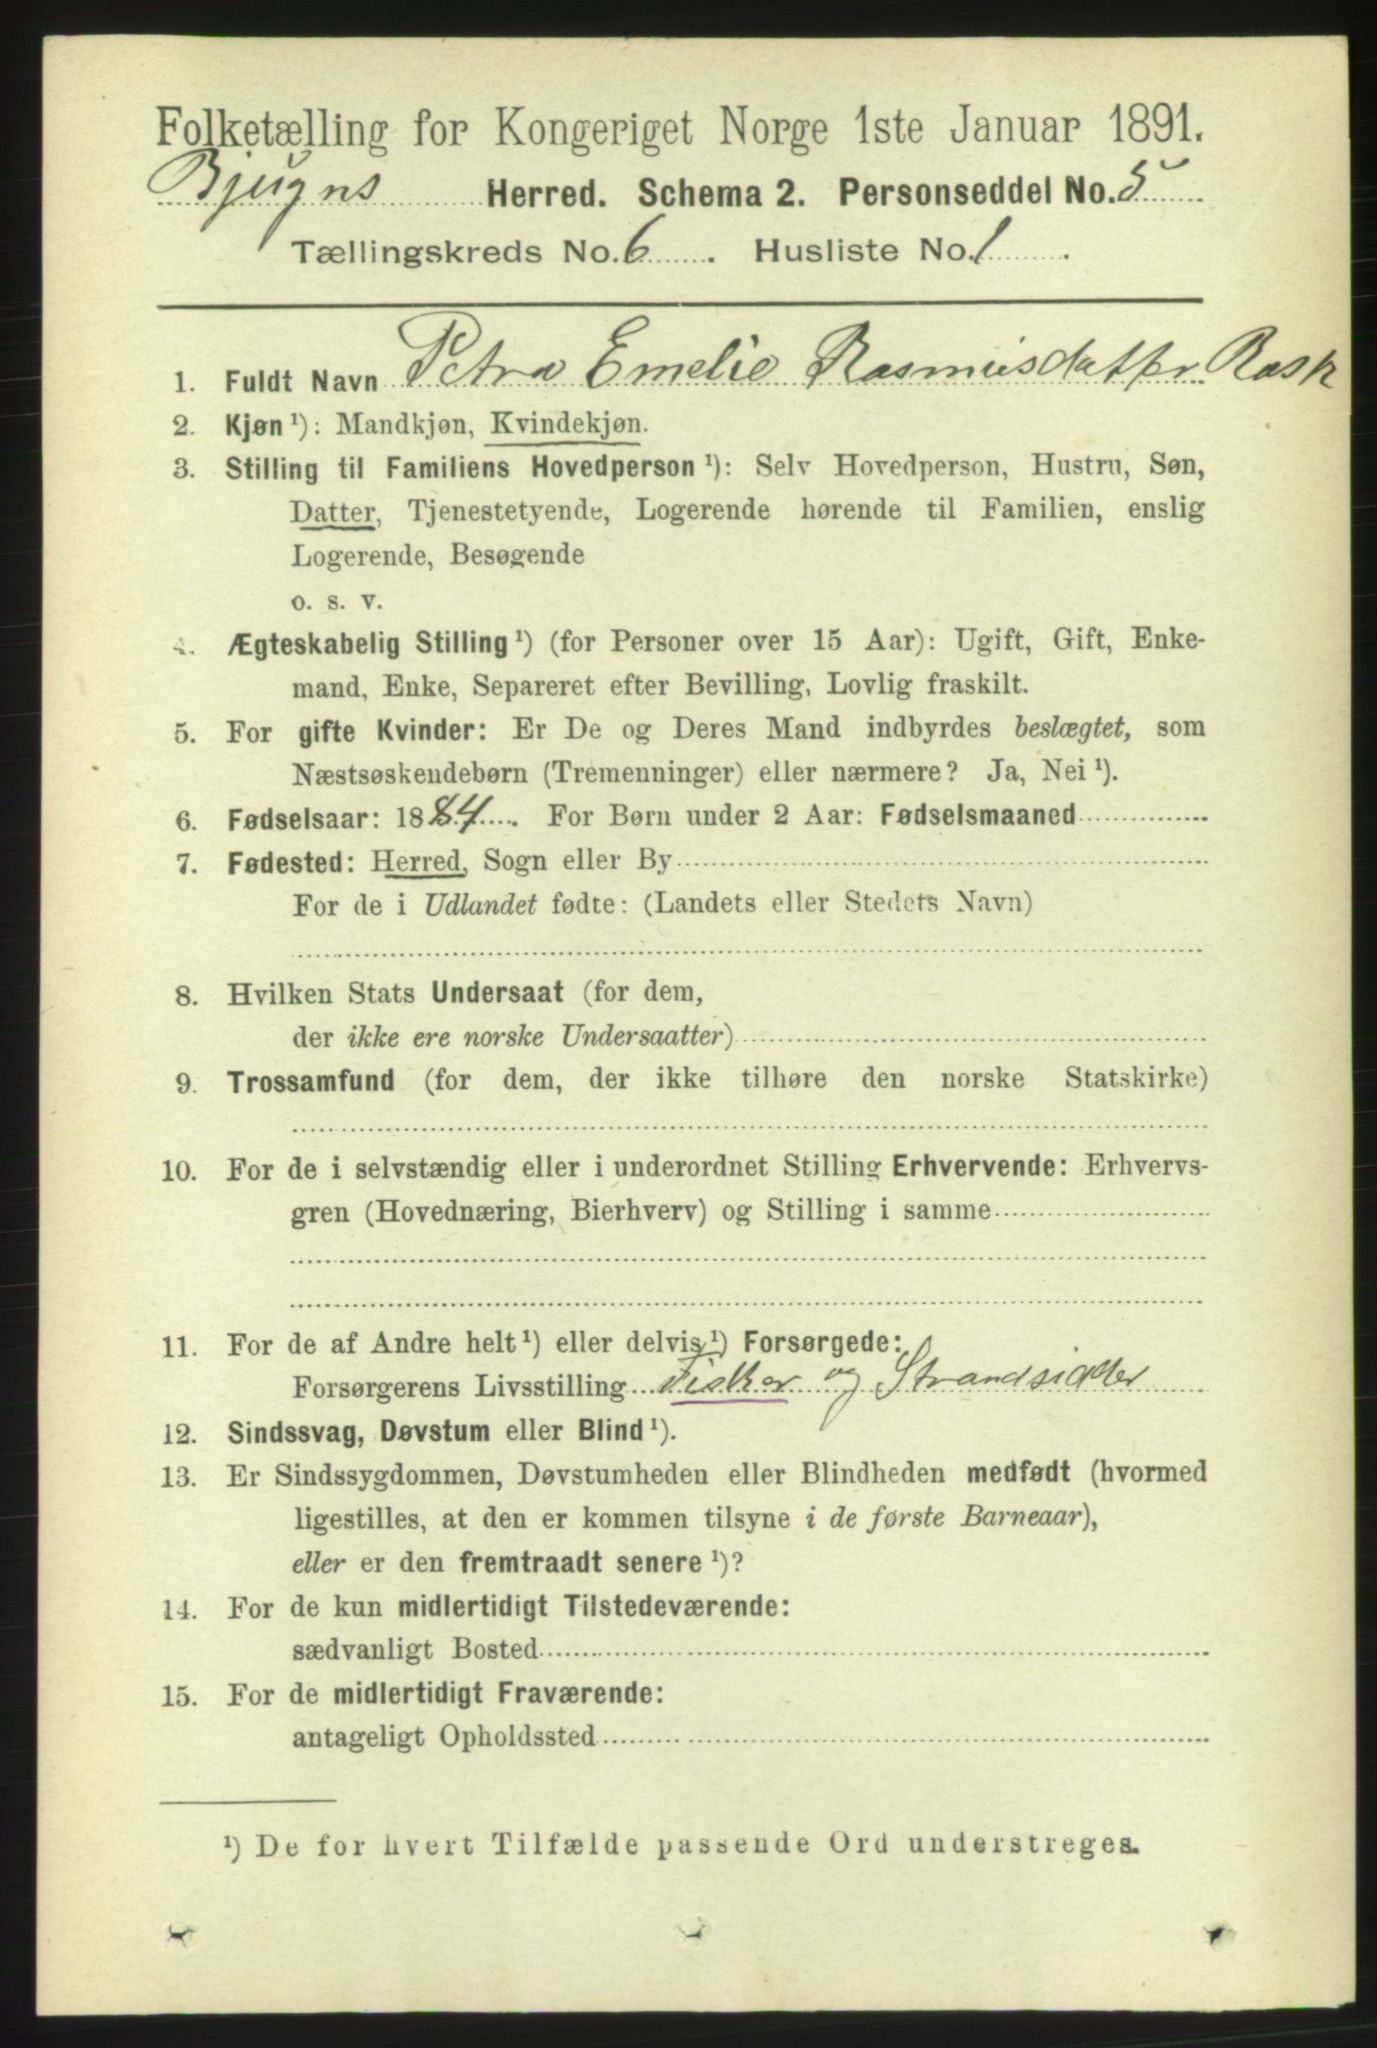 Folketælling for Kongeriget Norge 1ste Januar 1891.
Bjugns Herred. Schema 2. Personseddel No. 5
Tællingskreds No. 6. Husliste No. 1.
1. Fuldt Navn Petra Emelie Rasmusdatter Rask
2. Kjøn ¹): Mandkjøn, Kvindekjøn.
3. Stilling til Familiens Hovedperson ¹): Selv Hovedperson, Hustru, Søn,
Datter, Tjenestetyende, Logerende hørende til Familien, enslig
Logerende, Besøgende
o. s. v.
4. Ægteskabelig Stilling ¹) (for Personer over 15 Aar): Ugift, Gift, Enke-
mand, Enke, Separeret efter Bevilling, Lovlig fraskilt.
5. For gifte Kvinder: Er De og Deres Mand indbyrdes beslægtet, som
Næstsøskendebørn (Tremenninger) eller nærmere? Ja, Nei ¹).
6. Fødselsaar: 1884. For Børn under 2 Aar: Fødselsmaaned
7. Fødested: Herred, Sogn eller By
For de i Udlandet fødte: (Landets eller Stedets Navn)
8. Hvilken Stats Undersaat (for dem,
der ikke ere norske Undersaatter)
9. Trossamfund (for dem, der ikke tilhøre den norske Statskirke)
10. For de i selvstændig eller i underordnet Stilling Erhvervende: Erhvervs-
gren (Hovednæring, Bierhverv) og Stilling i samme
11. For de af Andre helt ¹) eller delvis ¹) Forsørgede:
Forsørgerens Livsstilling Fisker og Strandsidder
12. Sindssvag, Døvstum eller Blind ¹).
13. Er Sindssygdommen, Døvstumheden eller Blindheden medfødt (hvormed
ligestilles, at den er kommen tilsyne i de første Barneaar),
eller er den fremtraadt senere ¹)?
14. For de kun midlertidigt Tilstedeværende:
sædvanligt Bosted
15. For de midlertidigt Fraværende:
antageligt Opholdssted
¹) De for hvert Tilfælde passende Ord understreges.